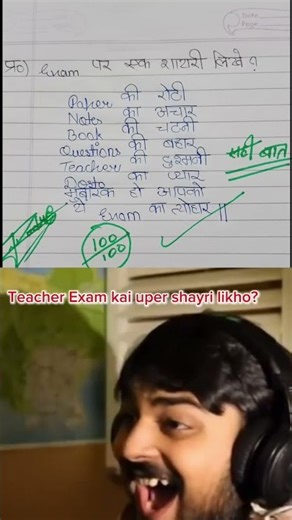 प्र०) Exam पर एक शायरी लिखे?
Paper की रोटी
Notes का अचार
Book की चटनी
Questions की बहार
Teacher की दुश्मनी
का प्यार
मुबारक हो आपको
ये Exam का त्योहार ||
सही बात
100
100
Teacher Exam kai uper shayri likho?